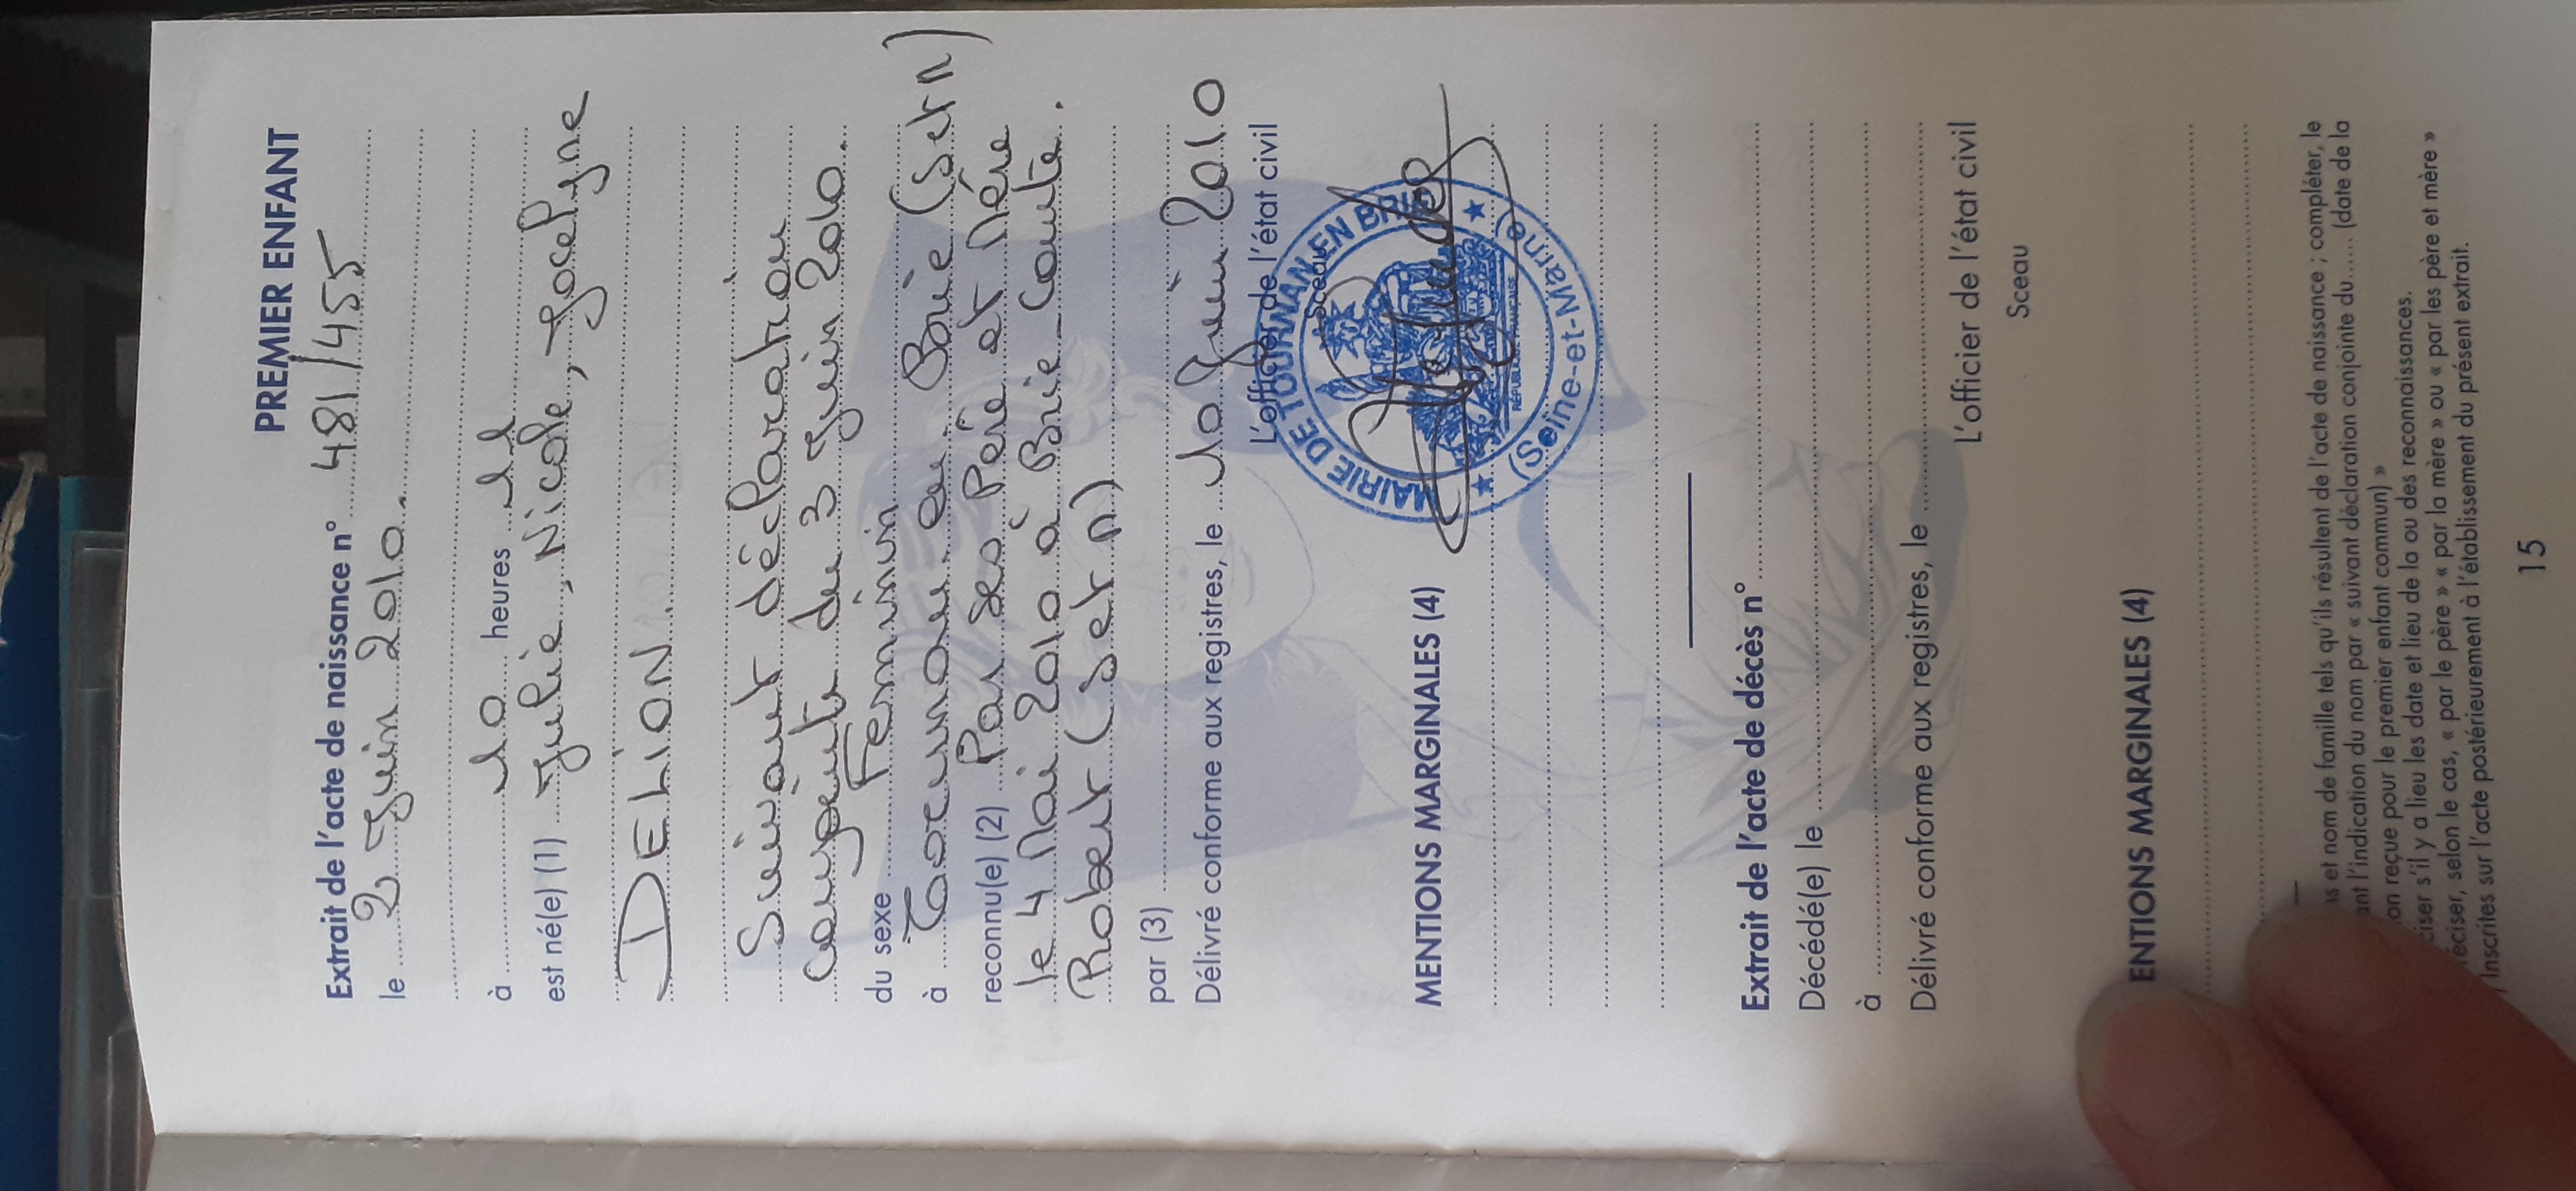 PREMIER ENFANT
Extrait de l'acte de naissance n° 481/455
le 2 Juin 2010.
à 10 heures 11
est né(e) (1) Julie, Nicole, Jocelyne
DELION.
Suivant déclaration
conjointe du 3 Juin 2010.
du sexe Feminin
à Tournan en Brie (S et M)
reconnu(e) (2) Par ses Père et Mère
le 4 Mai 2010 à Brie-Comte.
Robert (S et M)
par (3)
Délivré conforme aux registres, le 10 Juin 2010
L'officier de l'état civil
Sceau
MAIRIE DE TOURNAN EN BRIE
RÉPUBLIQUE FRANÇAISE
(Seine-et-Marne)
MENTIONS MARGINALES (4)
Extrait de l'acte de décès n°
Décédé(e) le
à
Délivré conforme aux registres, le
L'officier de l'état civil
Sceau
ENTIONS MARGINALES (4)
et nom de famille tels qu'ils résultent de l'acte de naissance ; compléter, le
ant l'indication du nom par « suivant déclaration conjointe du..... (date de la
on reçue pour le premier enfant commun) »
ciser s'il y a lieu les date et lieu de la ou des reconnaissances.
éciser, selon le cas, « par le père » « par la mère » ou « par les père et mère »
Inscrites sur l'acte postérieurement à l'établissement du présent extrait.
15